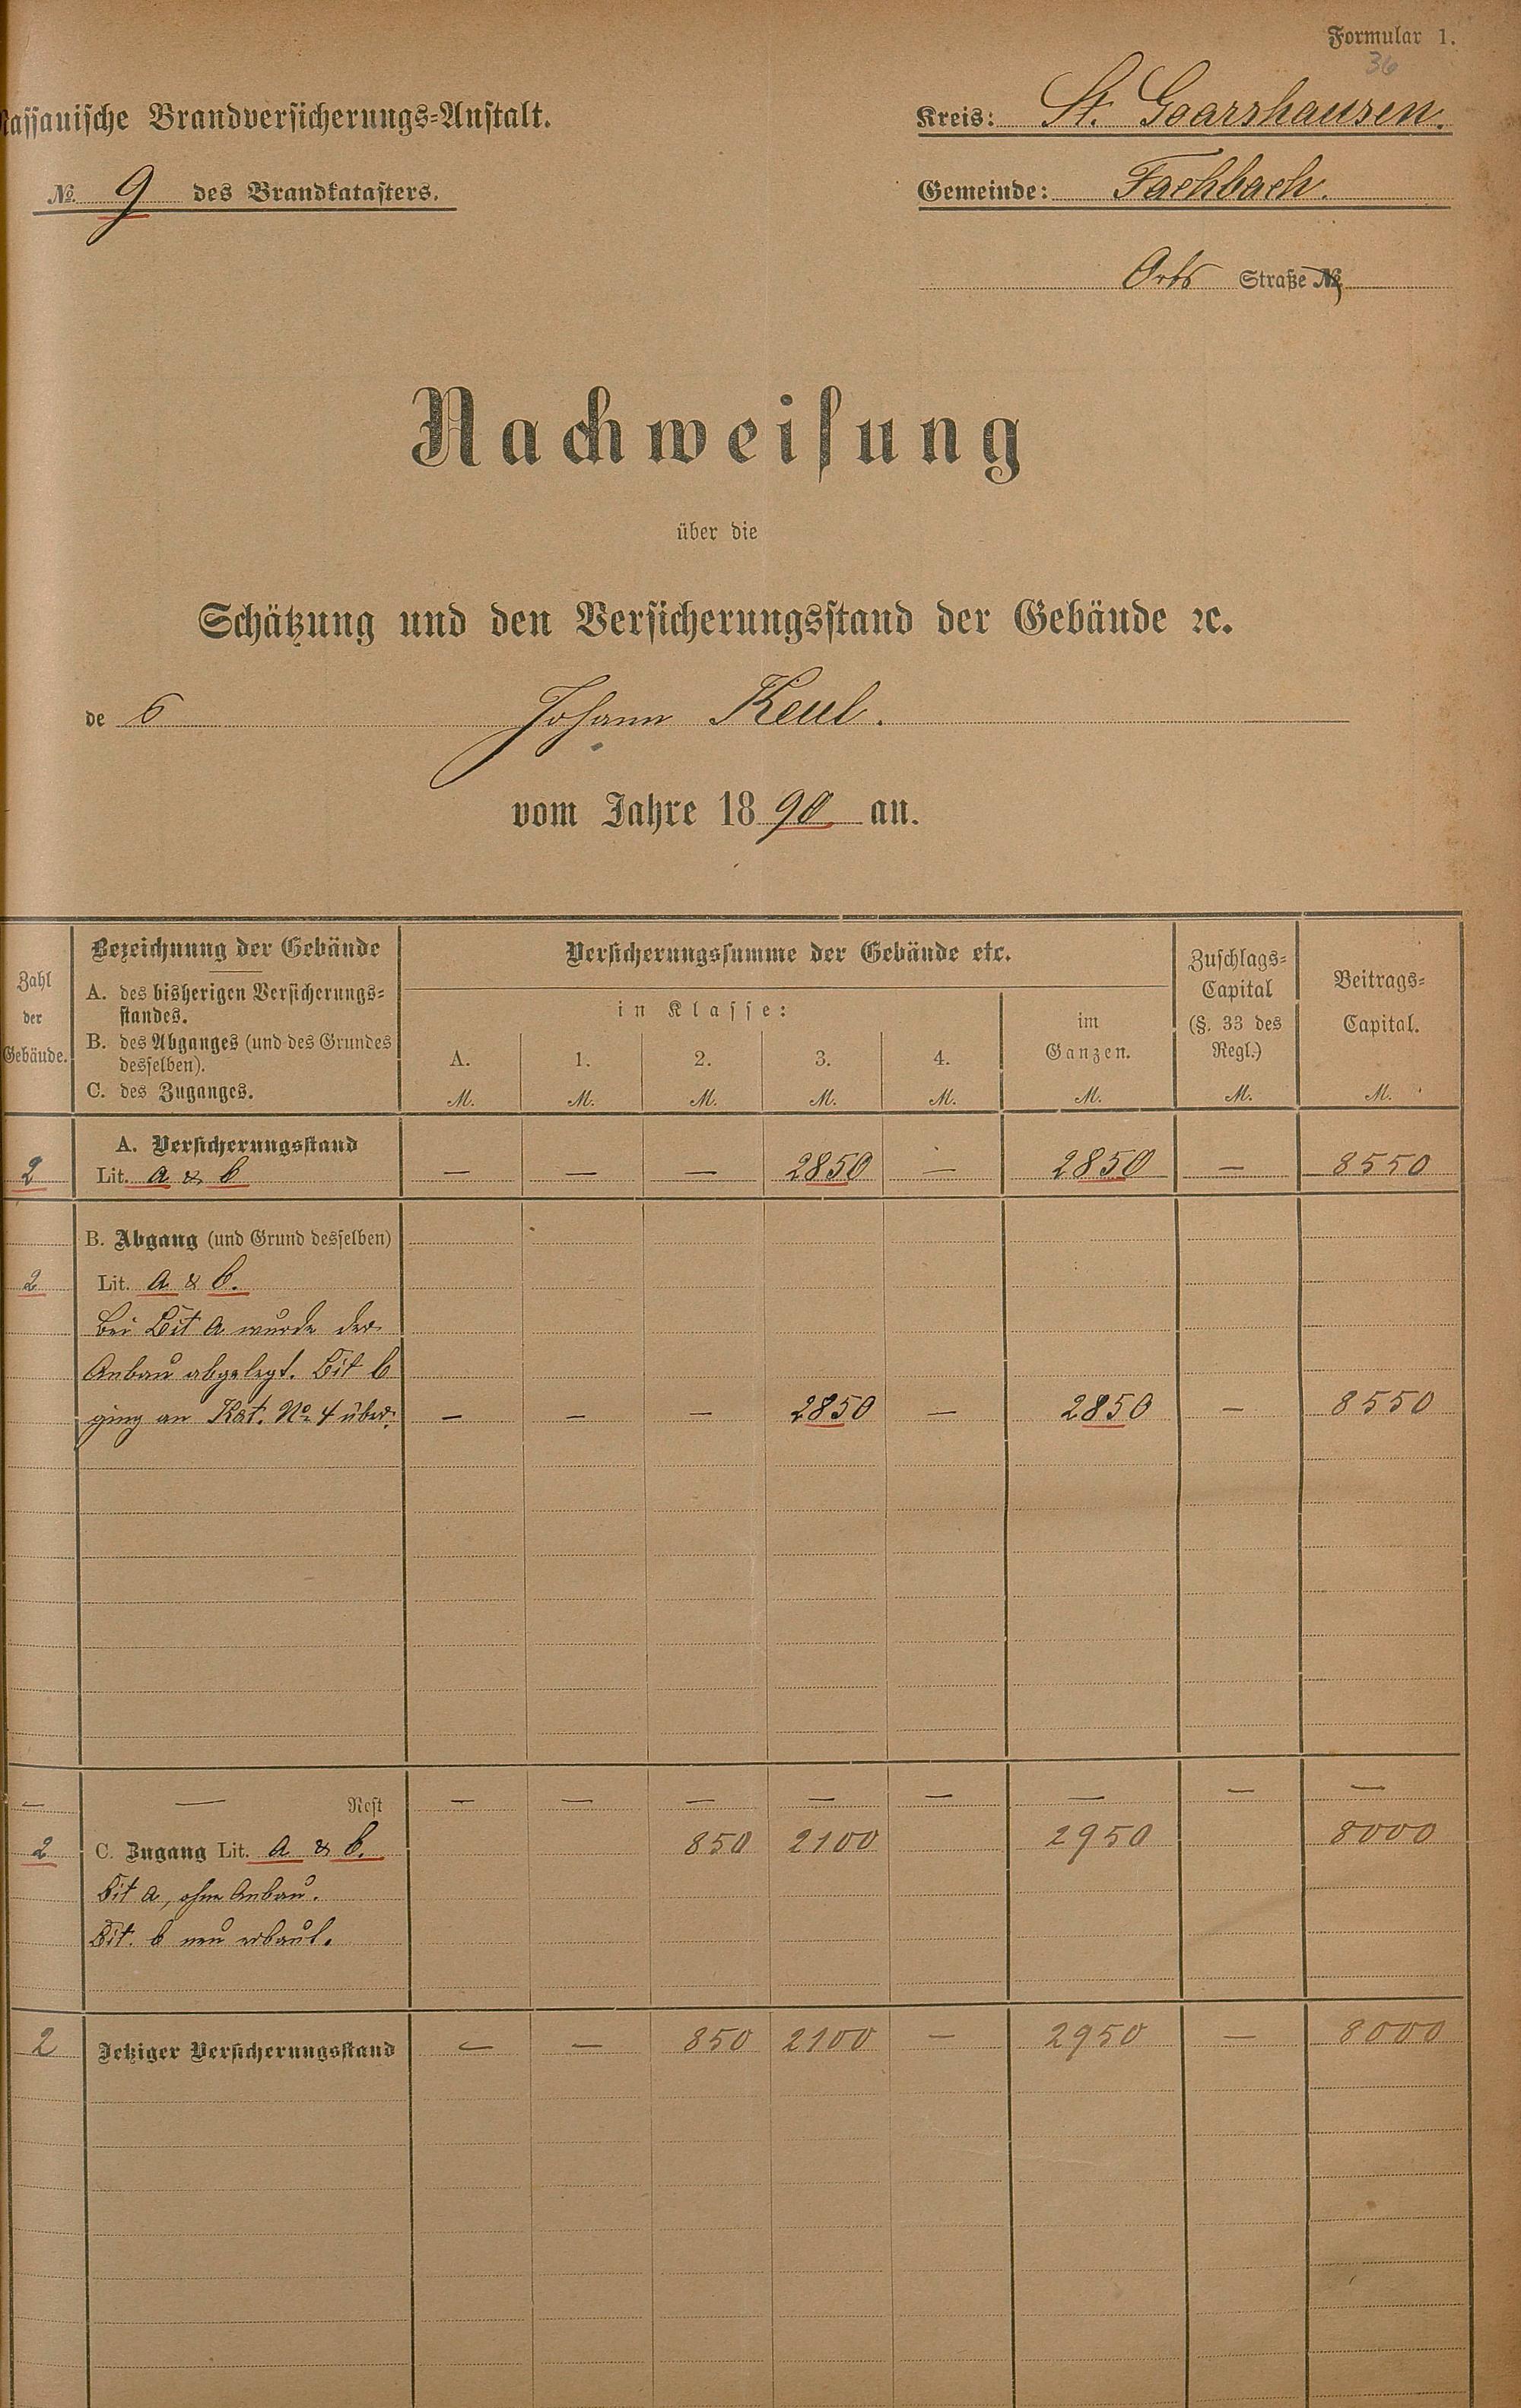 Formular 1.
36
Nassauische Brandversicherungs-Anstalt.
Kreis: St. Goarshausen.
No. 9 des Brandkatasters.
Gemeinde: Fachbach.
Orts Straße No
Nachweisung
über die
Schätzung und den Versicherungsstand der Gebäude ꝛc.
des Johann Keul.
vom Jahre 1890 an.
Zahl der Gebäude.
Bezeichnung der Gebäude
A. des bisherigen Versicherungs-
standes.
B. des Abganges (und des Grundes
desselben).
C. des Zuganges.
Versicherungssumme der Gebäude etc.
in Klasse:
A. 1. 2. 3. 4.
M. M. M. M. M.
im
Ganzen.
M.
Zuschlags-
Capital
(§. 33 des
Regl.)
M.
Beitrags-
Capital.
M.
A. Versicherungsstand
2 Lit. a & b — — — 2850 — 2850 — 8550
B. Abgang (und Grund desselben)
2 Lit. a & b.
bei Lit a wurde der
Anbau abgelegt. Lit b
ging an Kat. No 4 über. — — — 2850 — 2850 — 8550
— — Rest — — — — — — — —
2 C. Zugang Lit. a & b. 850 2100 2950 8000
Lit a, ohne Anbau.
Lit. b neu erbaut.
2 Jetziger Versicherungsstand — — 850 2100 — 2950 — 8000